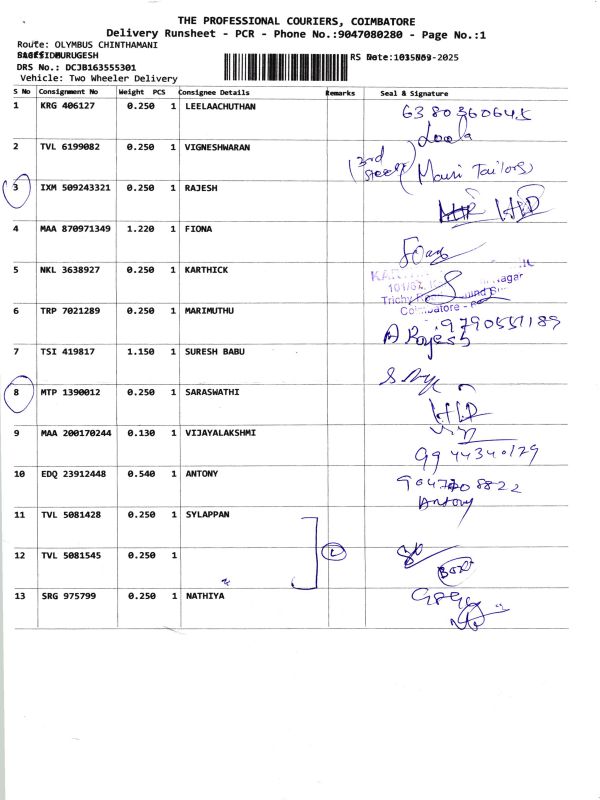 THE PROFESSIONAL COURIERS, COIMBATORE
Delivery Runsheet - PCR - Phone No.:9047080280 - Page No.:1
Route: OLYMBUS CHINTHAMANI
RS
DRS No.: DCJB163555301
Vehicle: Two Wheeler Delivery
S No Consignment No Weight PCS Consignee Details Remarks Seal & Signature
1 KRG 406127 0.250 1 LEELAACHUTHAN 6380360645
Leela
2 TVL 6199082 0.250 1 VIGNESHWARAN (3rd street) (Mani Tailors)
3 IXM 509243321 0.250 1 RAJESH
4 MAA 870971349 1.220 1 FIONA
5 NKL 3638927 0.250 1 KARTHICK
Coimbatore
6 TRP 7021289 0.250 1 MARIMUTHU 9790551189
A Rajesh
7 TSI 419817 1.150 1 SURESH BABU
8 MTP 1390012 0.250 1 SARASWATHI
9 MAA 200170244 0.130 1 VIJAYALAKSHMI
9944340129
10 EDQ 23912448 0.540 1 ANTONY
Antony
11 TVL 5081428 0.250 1 SYLAPPAN
12 TVL 5081545 0.250 1
13 SRG 975799 0.250 1 NATHIYA